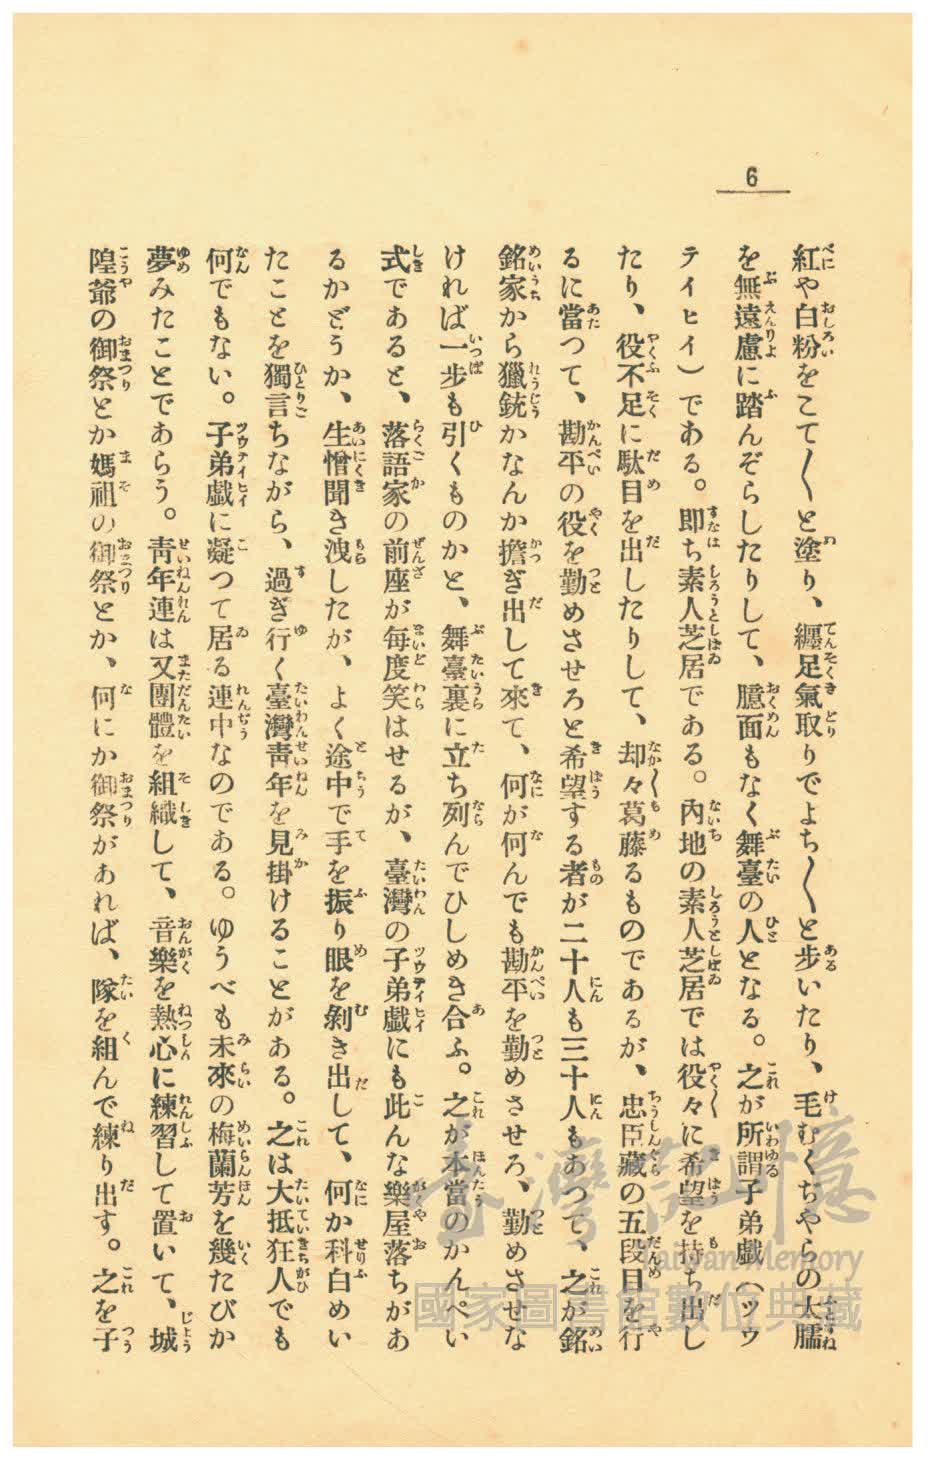 6
紅や白粉をこて〱と塗り、纏足氣取りでよち〱と歩いたり、毛むくぢやらの太腨
を無遠慮に踏んぞらしたりして、臆面もなく舞臺の人となる。之が所謂子弟戲（ツウ
テイヒイ）である。即ち素人芝居である。內地の素人芝居では役々に希望を持ち出し
たり、役不足に駄目を出したりして、却々葛藤るものであるが、忠臣藏の五段目を行
るに當つて、勘平の役を勤めさせろと希望する者が二十人も三十人もあつて、之が銘
銘家から獵銃かなんか擔ぎ出して來て、何が何んでも勘平を勤めさせろ、勤めさせな
ければ一步も引くものかと、舞臺裏に立ち列んでひしめき合ふ。之が本當のかんぺい
式であると、落語家の前座が每度笑はせるが、臺灣の子弟戲にも此んな樂屋落ちがあ
るかどうか、生憎聞き洩したが、よく途中で手を振り眼を剝き出して、何か科白めい
たことを獨言ちながら、過ぎ行く臺灣靑年を見掛けることがある。之は大抵狂人でも
何でもない。子弟戲に凝つて居る連中なのである。ゆうべも未來の梅蘭芳を幾たびか
夢みたことであらう。靑年連は又團體を組織して、音樂を熱心に練習して置いて、城
隍爺の御祭とか媽祖の御祭とか、何にか御祭があれば、隊を組んで練り出す。之を子
臺灣記憶
Taiwan Memory
國家圖書館數位典藏